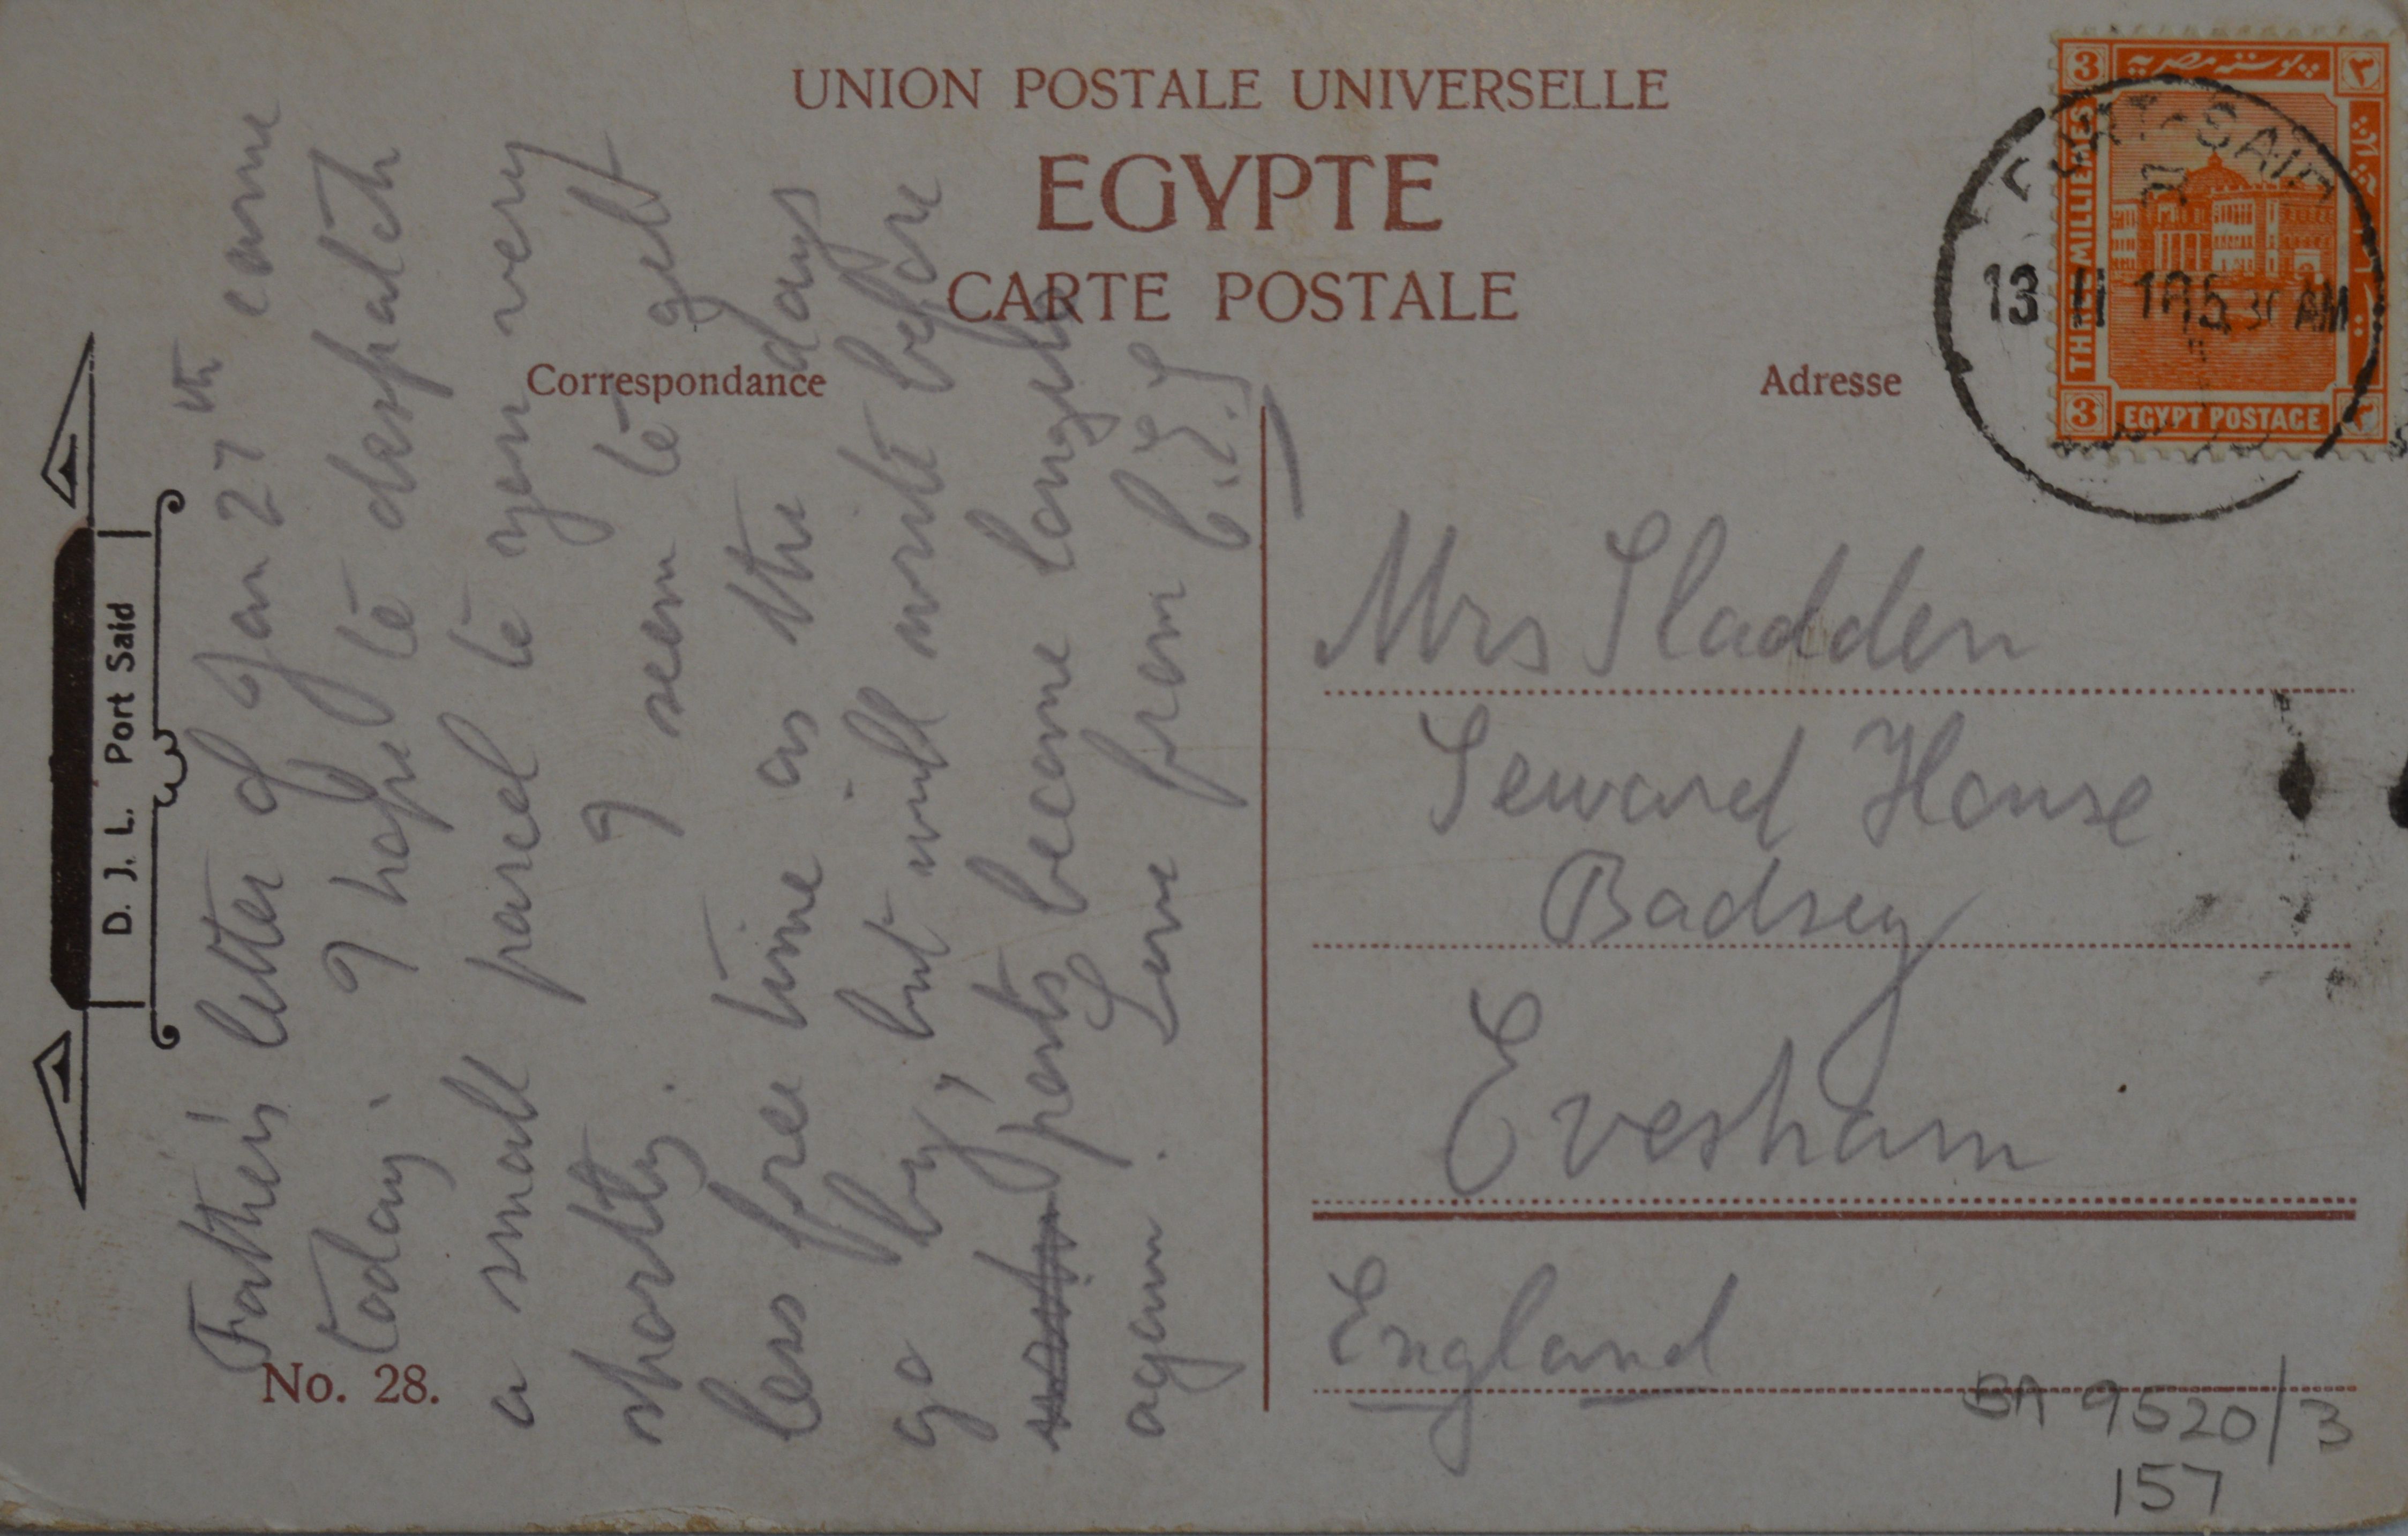 UNION POSTALE UNIVERSELLE
EGYPTE
CARTE POSTALE
Correspondance
Adresse
D. J. L. Port Said
No. 28.
Father's letter of Jan 27th came
today. I hope to despatch
a small parcel to you very
shortly. I seem to get
less free time as the days
go by, but will write before
posts become longer
again. Love from C.E.S
Mrs Sladden
Seward House
Badsey
Evesham
England
BA 9520/3
157
3
بوستة مصرية
٣
THREE MILLIEMES
3
EGYPT POSTAGE
٣
PORT-SAID
13 II
AM